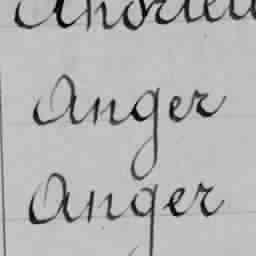 Anger
Anger